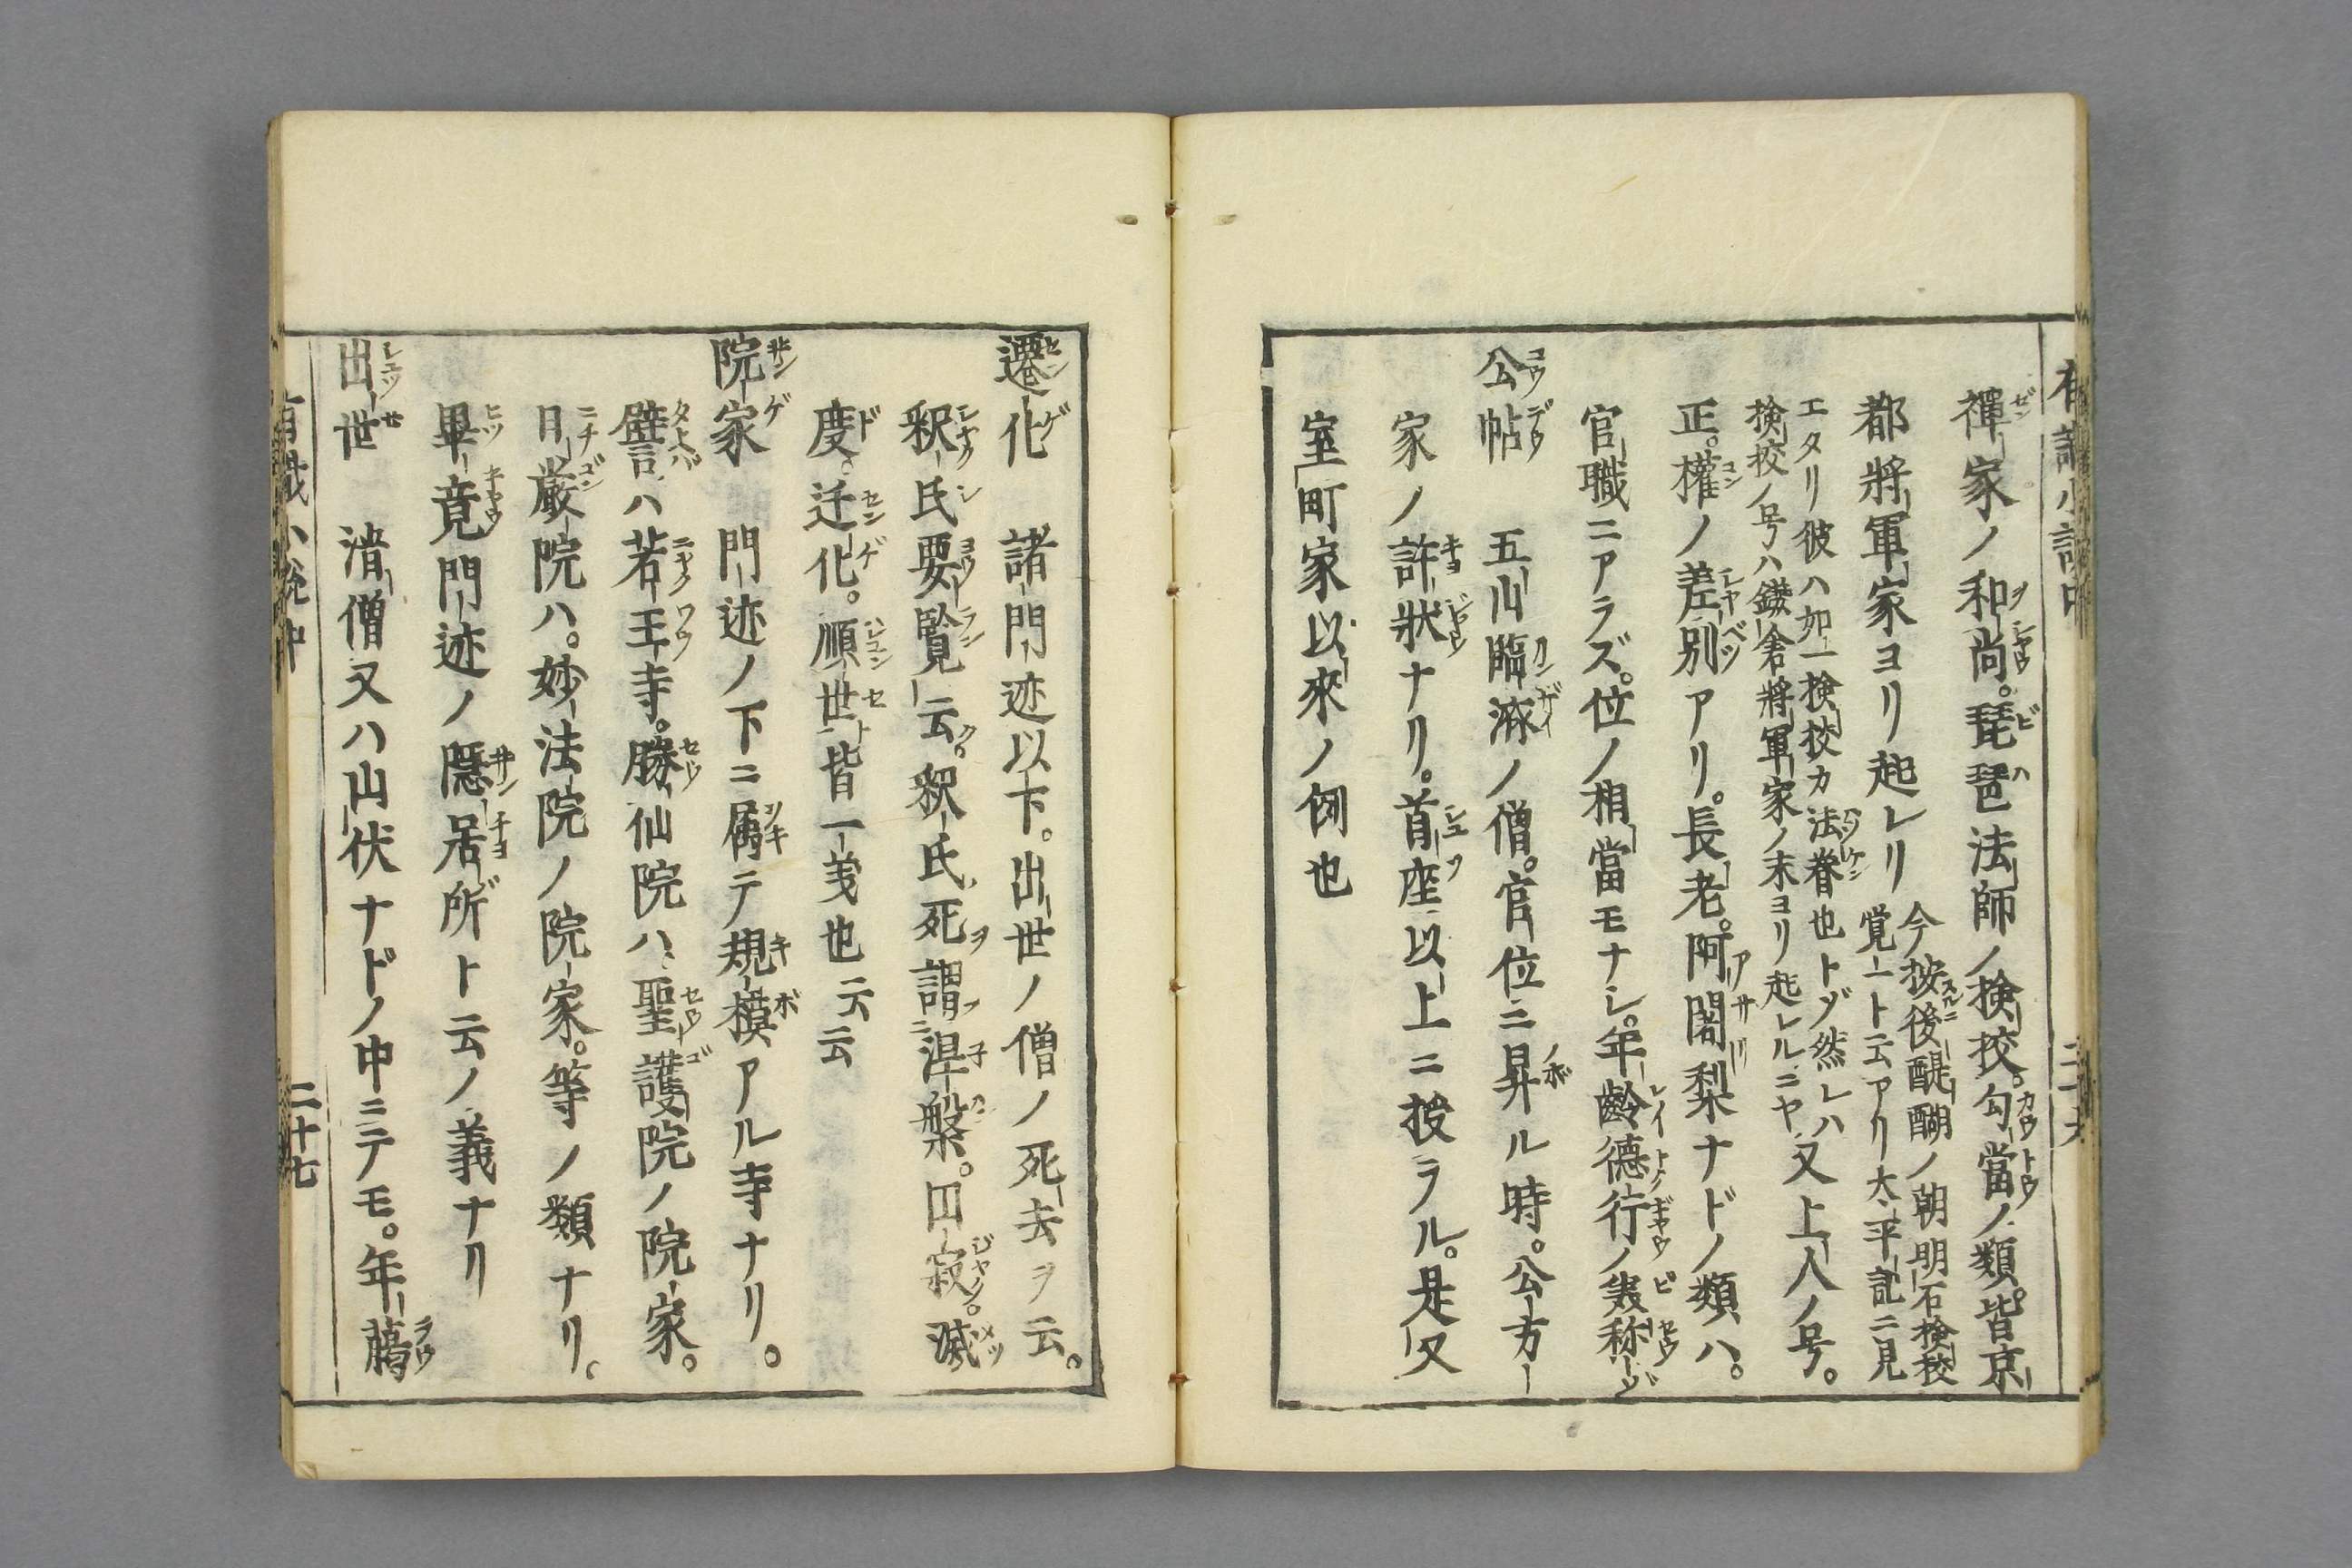 禪家ノ和尚。琵琶法師ノ検校。勾當ノ類。皆京
都將軍家ヨリ起レリ
今按後醍醐ノ朝明石検校
覚一ト云アリ大平記ニ見
エタリ彼ハ如一検校カ法眷也トゾ然レハ
検校ノ号ハ鎌倉將軍家ノ末ヨリ起レルニヤ
又上人ノ号。
正。權ノ差別アリ。長老。阿闍梨ナドノ類ハ。
官職ニアラズ。位ノ相當モナシ。年齢德行ノ美称ゾ
公帖 五山臨済ノ僧。官位ニ昇ル時。公方
家ノ許狀ナリ。首座以上ニ授ラル。是又
室町家以來ノ例也
遷化 諸門迹以下。出世ノ僧ノ死去ヲ云。
釈氏要覧云。釈氏死謂涅槃。円寂。滅
度。迁化。順世皆一義也云云
院家 門迹ノ下ニ属テ規模アル寺ナリ。
譬ハ若王寺。勝仙院ハ聖護院ノ院家。
日厳院ハ。妙法院ノ院家。等ノ類ナリ。
畢竟門迹ノ隠居所ト云ノ義ナリ
出世 清僧又ハ山伏ナドノ中ニテモ。年﨟
二十七